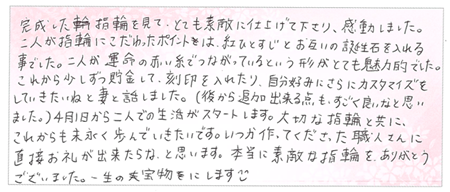 完成した指輪を見て、とても素敵に仕上げて下さり、感動しました。
二人が指輪にこだわったポイントをは、紅ひとすじとお互いの誕生石を入れる
事でした。二人が運命の赤い糸でつながっているという形がとても魅力的でした。
これから少しずつ貯金して、刻印を入れたり、自分好みにさらにカスタマイズを
していきたいねと妻と話しました。(後から追加出来る点も、すごく良いなと思い
ました。)4月1日から二人での生活がスタートします。大切な指輪と共に、
これからも末永く歩んでいきたいです。いつか作ってくださった職人さんに
直接お礼が出来たらな、と思います。本当に素敵な指輪を、ありがとう
ございました。一生の宝物をにします